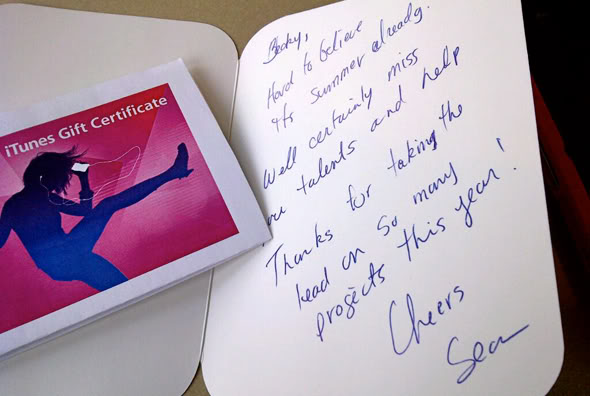 iTunes Gift Certificate
Becky,
Hard to believe
its summer already.
Well certainly miss
talents and help
Thanks for taking the
lead on so many
projects this year!
Cheers
Sean